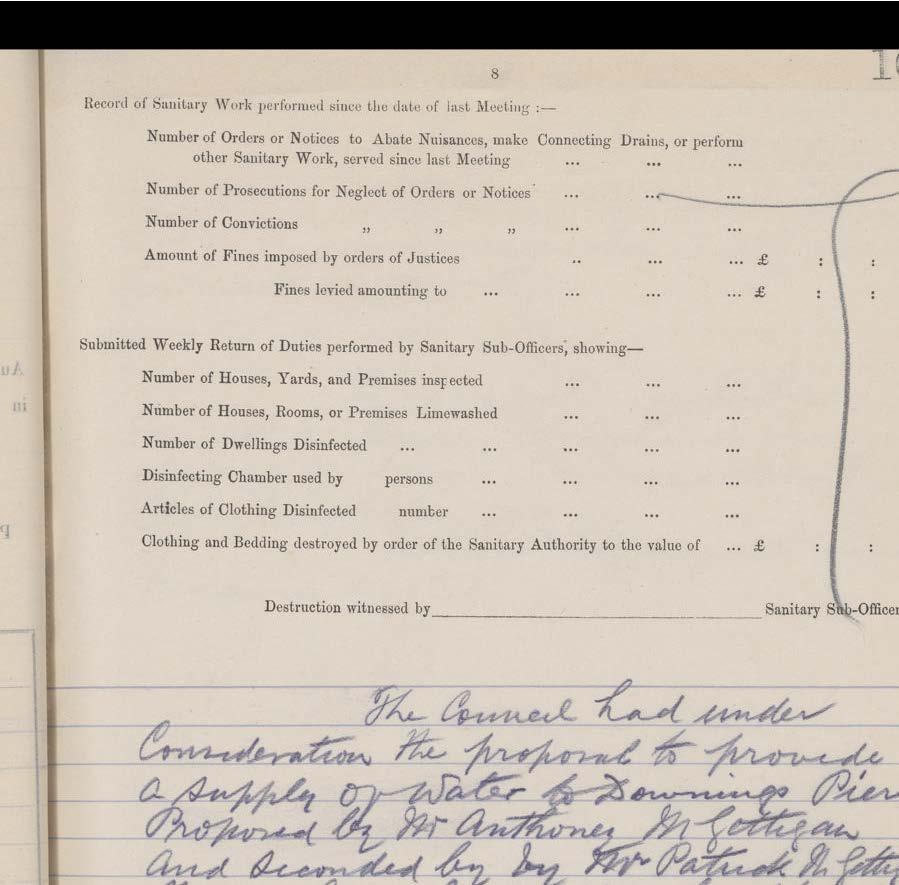 8
Record of Sanitary Work performed since the date of last Meeting :—
Number of Orders or Notices to Abate Nuisances, make Connecting Drains, or perform
other Sanitary Work, served since last Meeting ... ... ...
Number of Prosecutions for Neglect of Orders or Notices ... ... ...
Number of Convictions „ „ „ ... ... ...
Amount of Fines imposed by orders of Justices .. ... ... £ : :
Fines levied amounting to ... ... ... ... £ : :
Submitted Weekly Return of Duties performed by Sanitary Sub-Officers, showing—
Number of Houses, Yards, and Premises inspected ... ... ...
Number of Houses, Rooms, or Premises Limewashed ... ... ...
Number of Dwellings Disinfected ... ... ... ... ...
Disinfecting Chamber used by persons ... ... ... ...
Articles of Clothing Disinfected number ... ... ... ...
Clothing and Bedding destroyed by order of the Sanitary Authority to the value of ... £ : :
Destruction witnessed by Sanitary Sub-Officer
The Council had under
Consideration the proposal to provide
a supply of Water to Downings Pier
Proposed by Mr Anthoney McGettigan
and seconded by by Mr Patrick